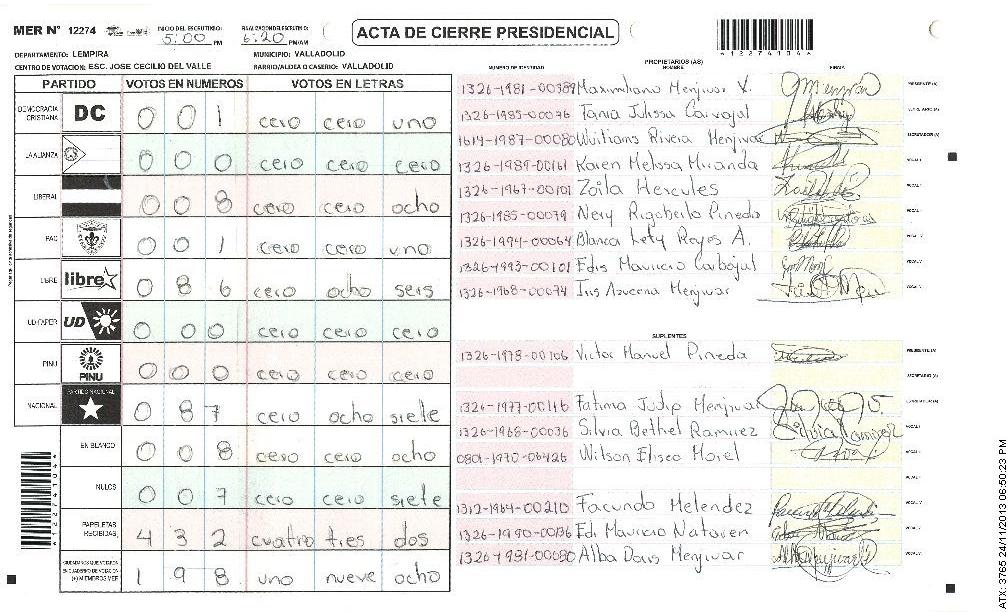 MER N° 12274
INICIO DEL ESCRUTINIO: 5:00 PM
FINALIZACION DEL ESCRUTINIO: 6:20 PM/AM
ACTA DE CIERRE PRESIDENCIAL
*12274104*
DEPARTAMENTO: LEMPIRA
MUNICIPIO: VALLADOLID
CENTRO DE VOTACION: ESC. JOSE CECILIO DEL VALLE
BARRIO/ALDEA O CASERIO: VALLADOLID
PARTIDO VOTOS EN NUMEROS VOTOS EN LETRAS
DEMOCRACIA CRISTIANA DC 0 0 1 cero cero uno
LA ALIANZA 0 0 0 cero cero cero
LIBERAL 0 0 8 cero cero ocho
PAC 0 0 1 cero cero uno
LIBRE libre 0 8 6 cero ocho seis
UD FAPER UD 0 0 0 cero cero cero
PINU PINU 0 0 0 cero cero cero
NACIONAL PARTIDO NACIONAL 0 8 7 cero ocho siete
EN BLANCO 0 0 8 cero cero ocho
NULOS 0 0 7 cero cero siete
PAPELETAS RECIBIDAS 4 3 2 cuatro tres dos
CIUDADANOS QUE VOTARON EN CUADERNO DE VOTACION (+) MIEMBROS MER 1 9 8 uno nueve ocho
PROPIETARIOS (AS)
NUMERO DE IDENTIDAD NOMBRE FIRMA
1326-1981-00389 Maximiliano Menjivar V. PRESIDENTE (A)
1326-1985-00076 Tania Julissa Carvajal SECRETARIO (A)
1614-1987-00080 Williams Rivera Menjivar ESCRUTADOR (A)
1326-1989-00161 Karen Melissa Miranda VOCAL I
1326-1967-00101 Zoila Hercules
1326-1985-00079 Nery Rigoberto Pineda
1326-1994-00064 Blanca Lety Reyes A.
1326-1993-00101 Edis Mauricio Carbajal
1326-1968-00074 Iris Azucena Menjivar
SUPLENTES
1326-1978-00106 Victor Manuel Pineda PRESIDENTE (A)
SECRETARIO (A)
1326-1977-00116 Fatima Judip Menjivar ESCRUTADOR (A)
1326-1968-00036 Silvia Bethel Ramirez
0801-1970-06426 Wilson Eliseo Morel
1312-1964-00210 Facundo Melendez
1326-1990-00136 Edi Mauricio Nataren
1326-1981-00080 Alba Doris Menjivar
ATX: 3765 24/11/2013 06:50:23 PM